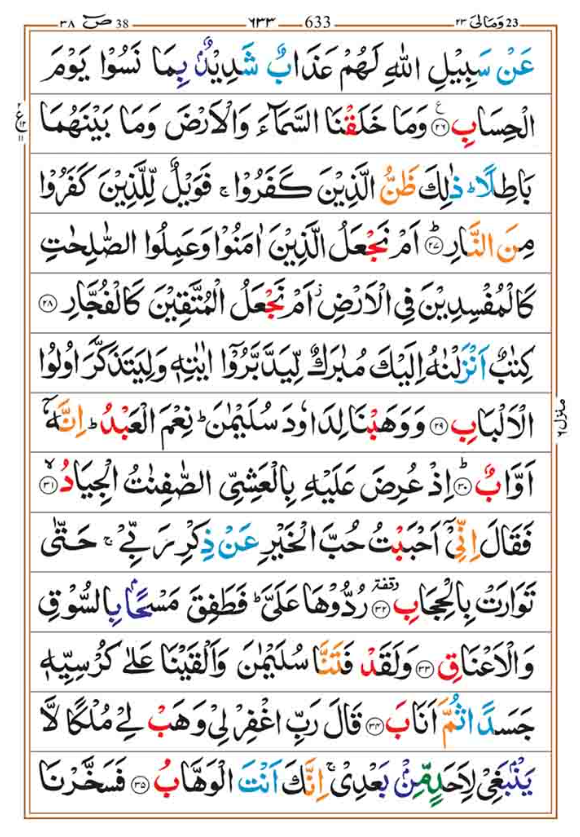 ٣٨ صٓ 38 ٦٣٣ 633 ٢٣ وَمَالِىَ 23
عَنْ سَبِيْلِ اللّٰهِ لَهُمْ عَذَابٌ شَدِيْدٌۢ بِمَا نَسُوْا يَوْمَ
الْحِسَابِ ۝٢٦ وَمَا خَلَقْنَا السَّمَآءَ وَالْاَرْضَ وَمَا بَيْنَهُمَا
بَاطِلًا ؕ ذٰلِكَ ظَنُّ الَّذِيْنَ كَفَرُوْا ۚ فَوَيْلٌ لِّلَّذِيْنَ كَفَرُوْا
مِنَ النَّارِ ؕ ۝٢٧ اَمْ نَجْعَلُ الَّذِيْنَ اٰمَنُوْا وَعَمِلُوا الصّٰلِحٰتِ
كَالْمُفْسِدِيْنَ فِى الْاَرْضِ ؗ اَمْ نَجْعَلُ الْمُتَّقِيْنَ كَالْفُجَّارِ ۝٢٨
كِتٰبٌ اَنْزَلْنٰهُ اِلَيْكَ مُبٰرَكٌ لِّيَدَّبَّرُوْۤا اٰيٰتِهٖ وَلِيَتَذَكَّرَ اُولُوا
الْاَلْبَابِ ۝٢٩ وَوَهَبْنَا لِدَاوٗدَ سُلَيْمٰنَ ؕ نِعْمَ الْعَبْدُ ؕ اِنَّهٗۤ
اَوَّابٌ ؕ ۝٣٠ اِذْ عُرِضَ عَلَيْهِ بِالْعَشِىِّ الصّٰفِنٰتُ الْجِيَادُ ۙ ۝٣١
فَقَالَ اِنِّىْۤ اَحْبَبْتُ حُبَّ الْخَيْرِ عَنْ ذِكْرِ رَبِّىْ ۚ حَتّٰى
تَوَارَتْ بِالْحِجَابِ ۝٣٢ رُدُّوْهَا عَلَىَّ ؕ فَطَفِقَ مَسْحًۢا بِالسُّوْقِ
وَالْاَعْنَاقِ ۝٣٣ وَلَقَدْ فَتَنَّا سُلَيْمٰنَ وَاَلْقَيْنَا عَلٰى كُرْسِيِّهٖ
جَسَدًا ثُمَّ اَنَابَ ۝٣٤ قَالَ رَبِّ اغْفِرْ لِىْ وَهَبْ لِىْ مُلْكًا لَّا
يَنْۢبَغِىْ لِاَحَدٍ مِّنْۢ بَعْدِىْ ۚ اِنَّكَ اَنْتَ الْوَهَّابُ ۝٣٥ فَسَخَّرْنَا
منزل ٦